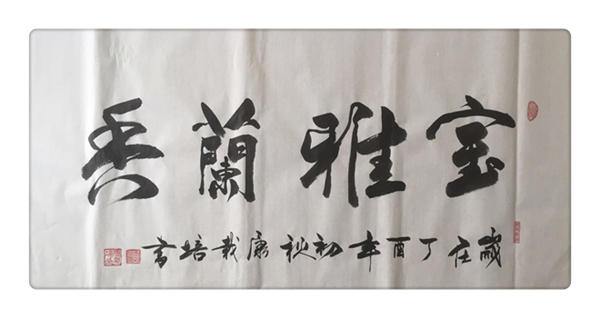 室雅蘭香
歲在丁酉年初秋康栽培書